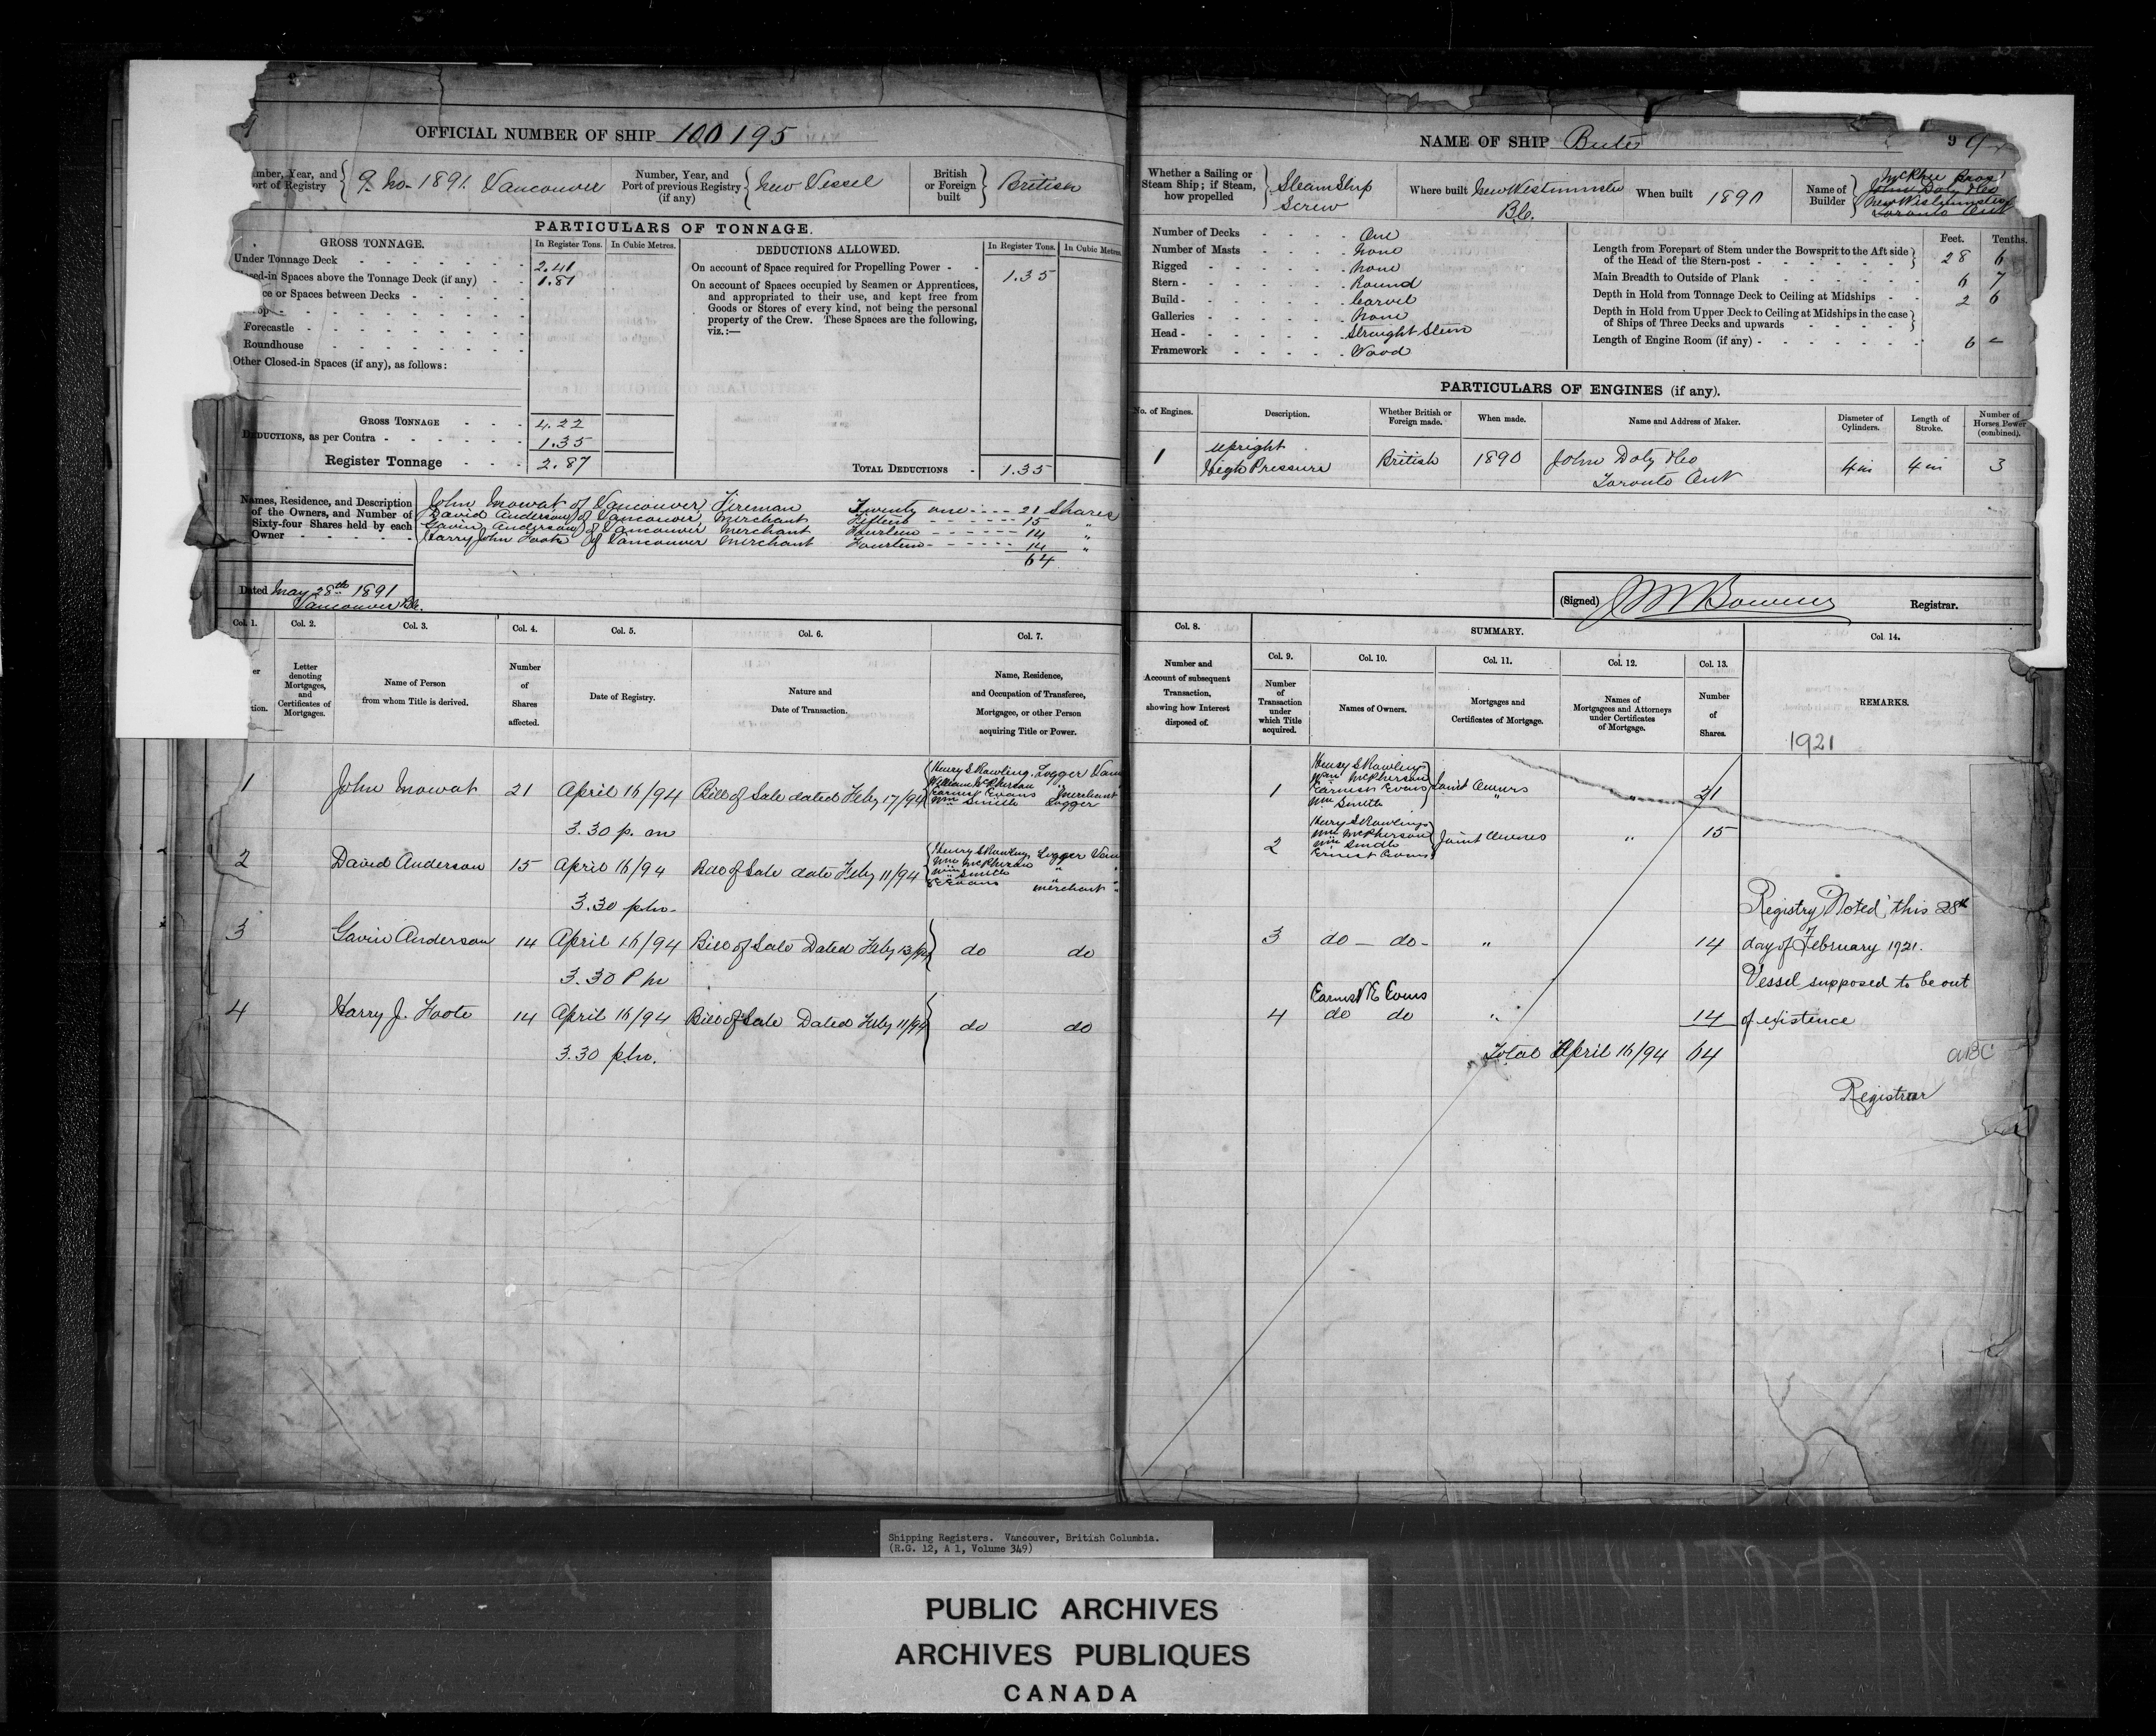 OFFICIAL NUMBER OF SHIP 100195
mber, Year, and
ort of Registry
9. No. 1891. Vancouver
Number, Year, and
Port of previous Registry
(if any)
New Vessel
British
or Foreign
built
British
PARTICULARS OF TONNAGE.
GROSS TONNAGE.
In Register Tons. In Cubic Metres.
Under Tonnage Deck 2.41
sed-in Spaces above the Tonnage Deck (if any) 1.81
ce or Spaces between Decks
op
Forecastle
Roundhouse
Other Closed-in Spaces (if any), as follows:
GROSS TONNAGE 4.22
DEDUCTIONS, as per Contra 1.35
Register Tonnage 2.87
DEDUCTIONS ALLOWED.
In Register Tons. In Cubic Metres.
On account of Space required for Propelling Power 1.35
On account of Spaces occupied by Seamen or Apprentices,
and appropriated to their use, and kept free from
Goods or Stores of every kind, not being the personal
property of the Crew. These Spaces are the following,
viz.:—
TOTAL DEDUCTIONS 1.35
Names, Residence, and Description
of the Owners, and Number of
Sixty-four Shares held by each
Owner
John Mowat of Vancouver, Fireman Twenty one 21 Shares
David Anderson of Vancouver, Merchant Fifteen 15 "
Gavin Anderson of Vancouver Merchant Fourteen 14 "
Harry John Foote of Vancouver Merchant Fourteen 14 "
64
Dated May 28th 1891
Vancouver B.C.
Col. 1. Col. 2. Col. 3. Col. 4. Col. 5. Col. 6. Col. 7.
er
tion.
Letter
denoting
Mortgages,
and
Certificates of
Mortgages.
Name of Person
from whom Title is derived.
Number
of
Shares
affected.
Date of Registry.
Nature and
Date of Transaction.
Name, Residence,
and Occupation of Transferee,
Mortgagee, or other Person
acquiring Title or Power.
1 John Mowat 21 April 16/94 Bill of Sale dated Feby 17/94
3.30 p.m
Henry S Rowling. Logger Van
William McPherson "
Earnest Evans Merchant
Wm Smith Logger
2 David Anderson 15 April 16/94 Bill of Sale date Feby 11/94
3.30 p.m.
Henry S Rowling Logger Van
Wm McPherson " "
Wm Smith
E Evans Merchant "
3 Gavin Anderson 14 April 16/94 Bill of Sale Dated Feby 13/94 do do
3.30 P m
4 Harry J. Foote 14 April 16/94 Bill of Sale Dated Feby 11/94 do do
3.30 p.m.
NAME OF SHIP Bute
9 9
Whether a Sailing or
Steam Ship; if Steam,
how propelled
Steam Ship
Screw
Where built New Westminster
B.C.
When built 1890
Name of
Builder
McPhee Bros
John Doty & Co
New Westminster
Toronto Ont
Number of Decks One
Number of Masts None
Rigged None
Stern Round
Build Carvel
Galleries None
Head Straight Stem
Framework Wood
Feet. Tenths.
Length from Forepart of Stem under the Bowsprit to the Aft side
of the Head of the Stern-post 28 6
Main Breadth to Outside of Plank 6 7
Depth in Hold from Tonnage Deck to Ceiling at Midships 2 6
Depth in Hold from Upper Deck to Ceiling at Midships in the case
of Ships of Three Decks and upwards
Length of Engine Room (if any) 6 –
PARTICULARS OF ENGINES (if any).
No. of Engines.
Description.
Whether British or
Foreign made.
When made.
Name and Address of Maker.
Diameter of
Cylinders.
Length of
Stroke.
Number of
Horses Power
(combined).
1 Upright
High Pressure British 1890 John Doty & Co
Toronto Ont 4 in 4 in 3
(Signed) Registrar.
Col. 8.
SUMMARY.
Col. 14.
Col. 9. Col. 10. Col. 11. Col. 12. Col. 13.
Number and
Account of subsequent
Transaction,
showing how Interest
disposed of.
Number
of
Transaction
under
which Title
acquired.
Names of Owners.
Mortgages and
Certificates of Mortgage.
Names of
Mortgagees and Attorneys
under Certificates
of Mortgage.
Number
of
Shares.
REMARKS.
1921
1 Henry S Rowling
Wm McPherson
Earnest Evans
Wm Smith
Joint Owners 21
2 Henry S Rowling
Wm McPherson
Wm Smith
Ernest Evans
Joint Owners " 15
3 do – do – " 14
Earnest E Evans
4 do do " 14
Total April 16/94 64
Registry Noted, this 28th
day of February 1921.
Vessel supposed to be out
of existence
Registrar
Shipping Registers. Vancouver, British Columbia.
(R.G. 12, A 1, Volume 349)
PUBLIC ARCHIVES
ARCHIVES PUBLIQUES
CANADA